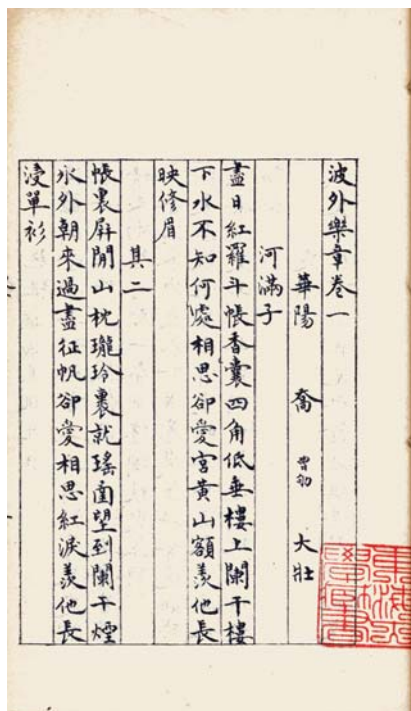 波外樂章卷一
華陽 喬 曾劬 大壯
河滿子
盡日紅羅斗帳香囊四角低垂樓上闌干樓
下水不知何處相思卻愛宮黃山額羨他長
映修眉
其二
帳裏屏閒山枕瓏玲裹就瑤函望到闌干煙
水外朝來過盡征帆卻愛相思紅淚羨他長
浸單衫